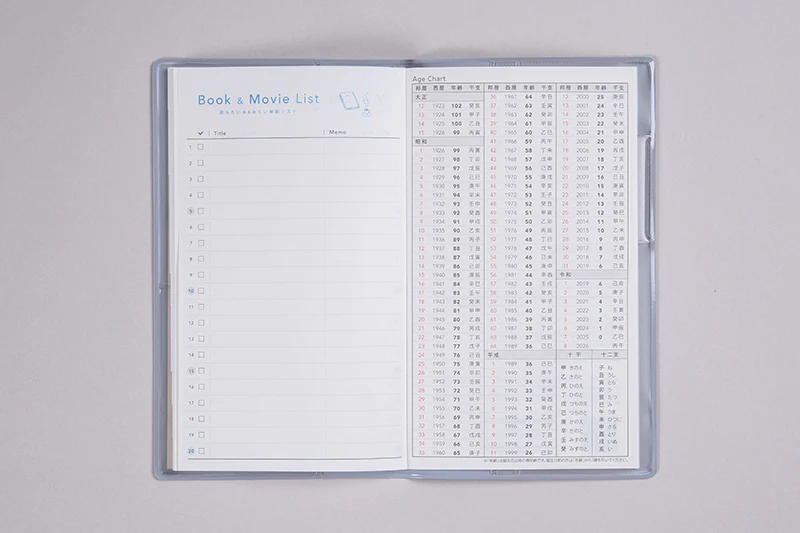 Book & Movie List
✓ Title Memo
1
2
3
4
5
6
7
8
9
10
11
12
13
14
15
16
17
18
19
20
Age Chart
邦暦 西暦 年齢 干支
大正
12 1923 102 癸亥
13 1924 101 甲子
14 1925 100 乙丑
15 1926 99 丙寅
昭和
1 1926 99 丙寅
2 1927 98 丁卯
3 1928 97 戊辰
4 1929 96 己巳
5 1930 95 庚午
6 1931 94 辛未
7 1932 93 壬申
8 1933 92 癸酉
9 1934 91 甲戌
10 1935 90 乙亥
11 1936 89 丙子
12 1937 88 丁丑
13 1938 87 戊寅
14 1939 86 己卯
15 1940 85 庚辰
16 1941 84 辛巳
17 1942 83 壬午
18 1943 82 癸未
19 1944 81 甲申
20 1945 80 乙酉
21 1946 79 丙戌
22 1947 78 丁亥
23 1948 77 戊子
24 1949 76 己丑
25 1950 75 庚寅
26 1951 74 辛卯
27 1952 73 壬辰
28 1953 72 癸巳
29 1954 71 甲午
30 1955 70 乙未
31 1956 69 丙申
32 1957 68 丁酉
33 1958 67 戊戌
34 1959 66 己亥
35 1960 65 庚子
邦暦 西暦 年齢 干支
36 1961 64 辛丑
37 1962 63 壬寅
38 1963 62 癸卯
39 1964 61 甲辰
40 1965 60 乙巳
41 1966 59 丙午
42 1967 58 丁未
43 1968 57 戊申
44 1969 56 己酉
45 1970 55 庚戌
46 1971 54 辛亥
47 1972 53 壬子
48 1973 52 癸丑
49 1974 51 甲寅
50 1975 50 乙卯
51 1976 49 丙辰
52 1977 48 丁巳
53 1978 47 戊午
54 1979 46 己未
55 1980 45 庚申
56 1981 44 辛酉
57 1982 43 壬戌
58 1983 42 癸亥
59 1984 41 甲子
60 1985 40 乙丑
61 1986 39 丙寅
62 1987 38 丁卯
63 1988 37 戊辰
64 1989 36 己巳
平成
1 1989 36 己巳
2 1990 35 庚午
3 1991 34 辛未
4 1992 33 壬申
5 1993 32 癸酉
6 1994 31 甲戌
7 1995 30 乙亥
8 1996 29 丙子
9 1997 28 丁丑
10 1998 27 戊寅
11 1999 26 己卯
邦暦 西暦 年齢 干支
12 2000 25 庚辰
13 2001 24 辛巳
14 2002 23 壬午
15 2003 22 癸未
16 2004 21 甲申
17 2005 20 乙酉
18 2006 19 丙戌
19 2007 18 丁亥
20 2008 17 戊子
21 2009 16 己丑
22 2010 15 庚寅
23 2011 14 辛卯
24 2012 13 壬辰
25 2013 12 癸巳
26 2014 11 甲午
27 2015 10 乙未
28 2016 9 丙申
29 2017 8 丁酉
30 2018 7 戊戌
31 2019 6 己亥
令和
1 2019 6 己亥
2 2020 5 庚子
3 2021 4 辛丑
4 2022 3 壬寅
5 2023 2 癸卯
6 2024 1 甲辰
7 2025 0 乙巳
8 2026 丙午
十干 十二支
甲 きのえ 子 ね
乙 きのと 丑 うし
丙 ひのえ 寅 とら
丁 ひのと 卯 う
戊 つちのえ 辰 たつ
己 つちのと 巳 み
庚 かのえ 午 うま
辛 かのと 未 ひつじ
壬 みずのえ 申 さる
癸 みずのと 酉 とり
戌 いぬ
亥 い